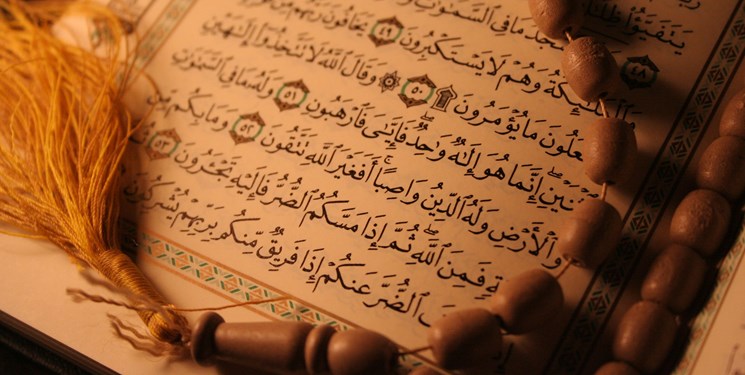 يَتَفَيَّؤُا۟
سْجُدُ مَا فِى ٱلسَّمَٰوَٰتِ
وَٱلْمَلَٰٓئِكَةُ وَهُمْ لَا يَسْتَكْبِرُونَ ٤٩ يَخَافُونَ رَبَّهُم مِّن
عَلُونَ مَا يُؤْمَرُونَ ۩ ٥٠ وَقَالَ ٱللَّهُ لَا تَتَّخِذُوٓا۟ إِلَٰهَيْنِ
ٱثْنَيْنِ ۖ إِنَّمَا هُوَ إِلَٰهٌ وَٰحِدٌ ۖ فَإِيَّٰىَ فَٱرْهَبُونِ ٥١ وَلَهُۥ مَا فِى ٱلسَّمَٰوَٰتِ
وَٱلْأَرْضِ وَلَهُ ٱلدِّينُ وَاصِبًا ۚ أَفَغَيْرَ ٱللَّهِ تَتَّقُونَ ٥٢ وَمَا بِكُم مِّن
ةٍ فَمِنَ ٱللَّهِ ۖ ثُمَّ إِذَا مَسَّكُمُ ٱلضُّرُّ فَإِلَيْهِ تَجْـَٔرُونَ ٥٣
فَ ٱلضُّرَّ عَنكُمْ إِذَا فَرِيقٌ مِّنكُم بِرَبِّهِمْ يُشْرِكُونَ